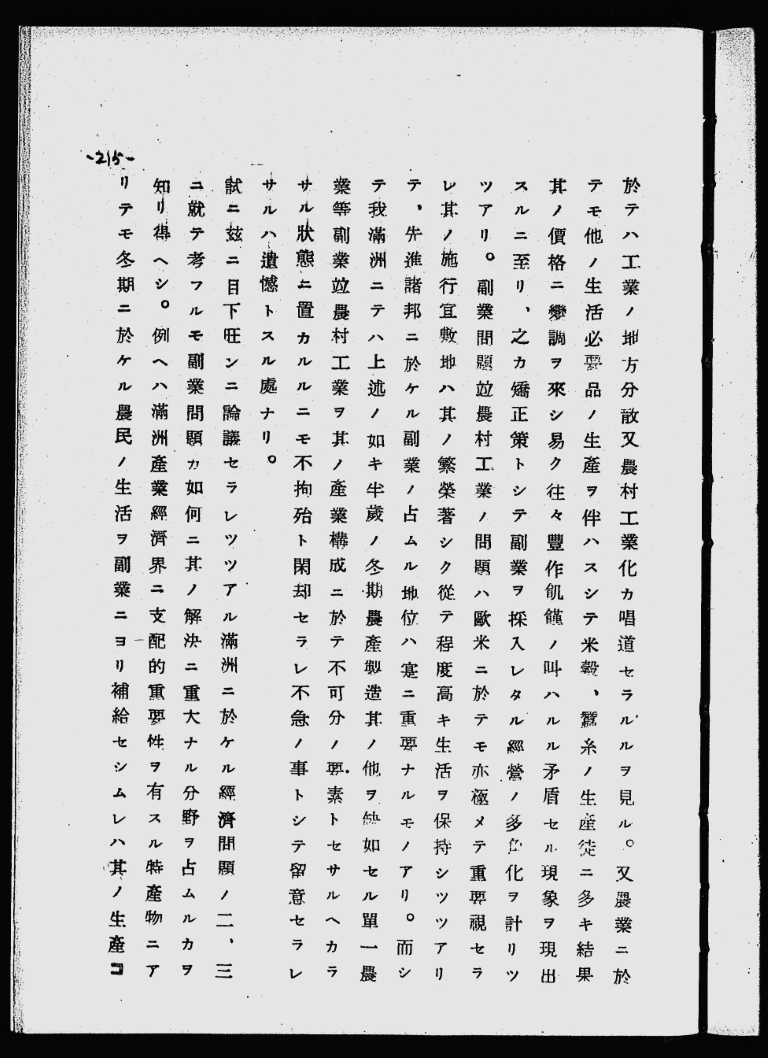 於テハ工業ノ地方分散又農村工業化カ唱道セラルルヲ見ル。又農業ニ於
テモ他ノ生活必要品ノ生産ヲ伴ハスシテ米穀、蠶糸ノ生産徒ニ多キ結果
其ノ價格ニ變調ヲ來シ易ク往々豐作飢饉ノ叫ハルル矛盾セル現象ヲ現出
スルニ至リ、之カ矯正策トシテ副業ヲ採入レタル經營ノ多角化ヲ計リツ
ツアリ。副業問題竝農村工業ノ問題ハ歐米ニ於テモ亦極メテ重要視セラ
レ其ノ施行宜敷地ハ其ノ繁榮著シク從テ程度高キ生活ヲ保持シツツアリ
テ、先進諸邦ニ於ケル副業ノ占ムル地位ハ寔ニ重要ナルモノアリ。而シ
テ我滿洲ニテハ上述ノ如キ半歲ノ冬期農產製造其ノ他ヲ缺如セル單一農
業等副業竝農村工業ヲ其ノ產業構成ニ於テ不可分ノ要素トセサルヘカラ
サル狀態ニ置カルルニモ不拘殆ト閑却セラレ不急ノ事トシテ留意セラレ
サルハ遺憾トスル處ナリ。
試ニ玆ニ目下旺ンニ論議セラレツツアル滿洲ニ於ケル經濟問題ノ二、三
ニ就テ考フルモ副業問題カ如何ニ其ノ解決ニ重大ナル分野ヲ占ムルカヲ
知リ得ヘシ。例ヘハ滿洲產業經濟界ニ支配的重要性ヲ有スル特產物ニア
リテモ冬期ニ於ケル農民ノ生活ヲ副業ニヨリ補給セシムレハ其ノ生產コ
-215-